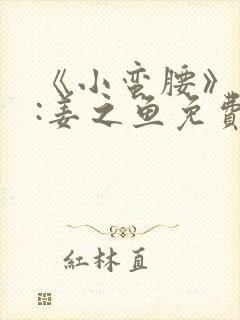 《小蛮腰》
:姜之鱼免費
紅林直